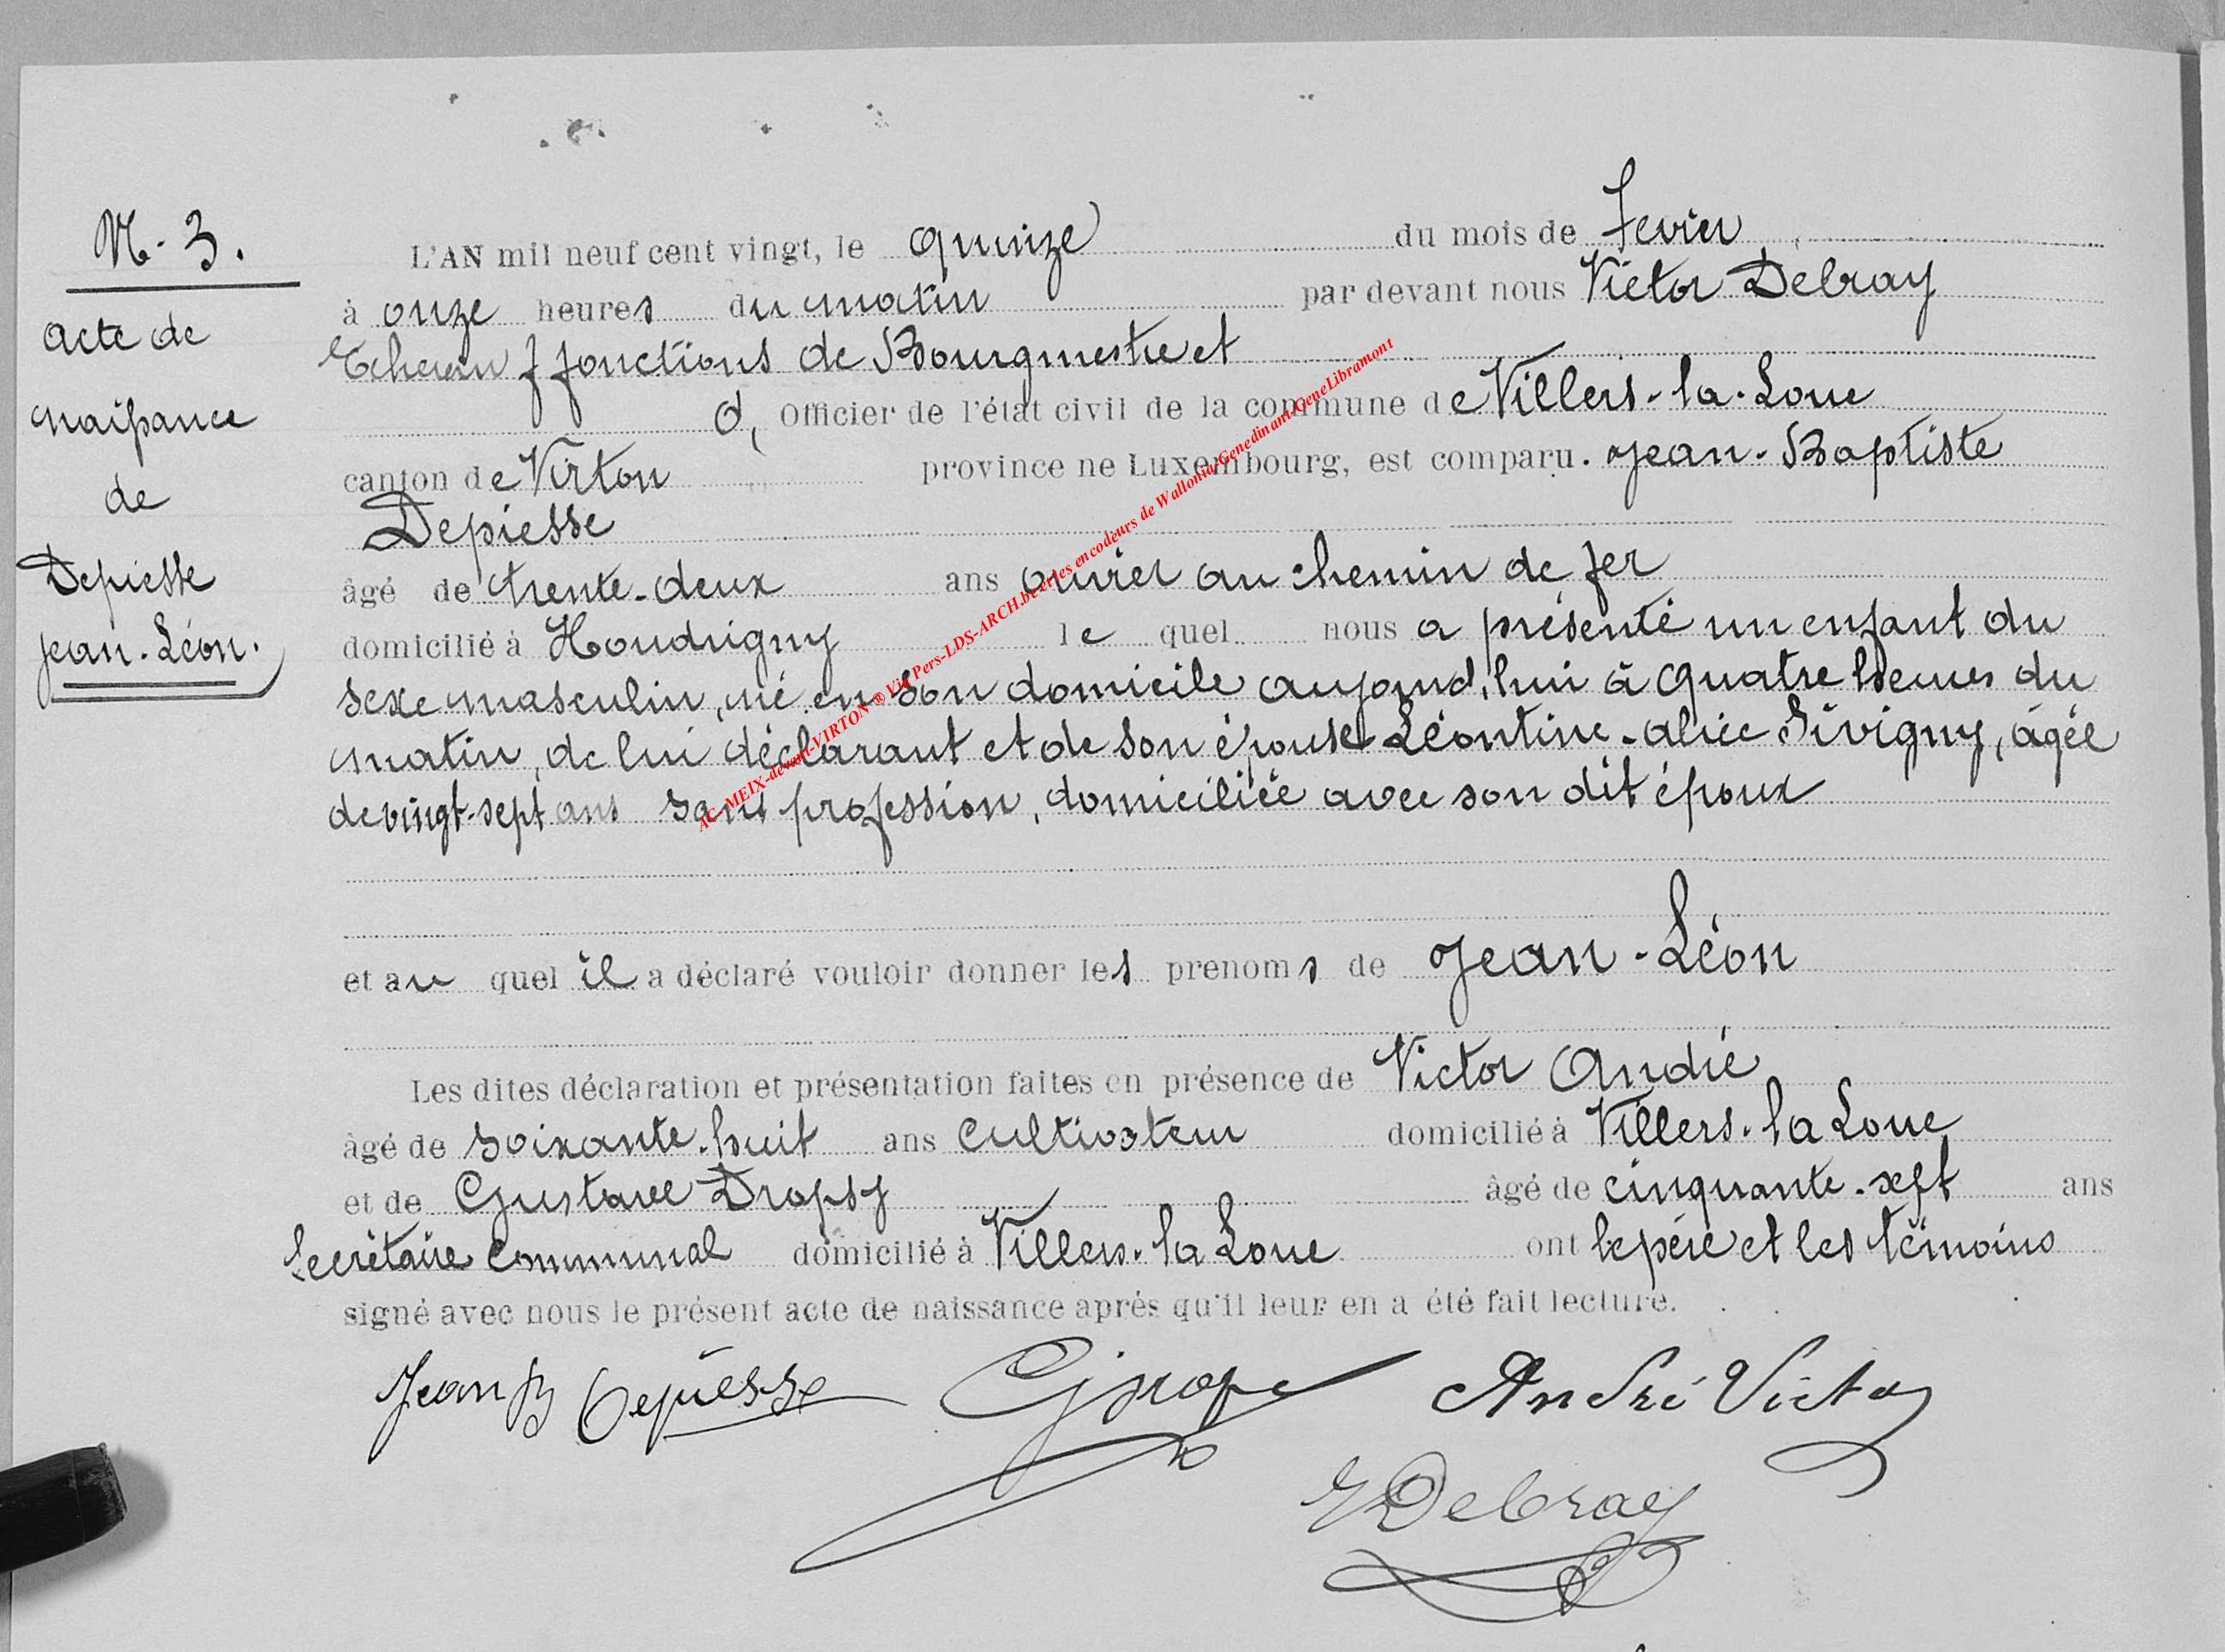 N. 3.
Acte de
naissance
de
Depiesse
Jean-Léon.
L'AN mil neuf cent vingt, le quinze du mois de Fevier
à onze heures du matin par devant nous Victor Debray
Echevin f fonctions de Bourgmestre et
d, Officier de l'état civil de la commune de Villers-la-Loue
canton de Virton province ne Luxembourg, est comparu. Jean-Baptiste
Depiesse
âgé de trente-deux ans ouvrier au chemin de fer
domicilié à Houdrigny le quel nous a présenté un enfant du
sexe masculin, né en son domicile aujourd'hui à quatre heures du
matin, de lui déclarant et de son épouse Léontine-Alice Sivigny, âgée
de vingt-sept ans sans profession, domiciliée avec son dit époux
et au quel il a déclaré vouloir donner les prenoms de Jean-Léon
Les dites déclaration et présentation faites en présence de Victor André
âgé de soixante-huit ans cultivateur domicilié à Villers-la Loue
et de Gustave Dropsy âgé de cinquante-sept ans
secrétaire communal domicilié à Villers-la Loue ont le père et les témoins
signé avec nous le présent acte de naissance aprés qu'il leur en a été fait lecture.
Jean B Depiesse André Victor
VDebray
AC-MEIX-devant-VIRTON ® Via Pers-LDS-ARCH.be et les encodeurs de Wallonia-Genedinant-GeneLibramont